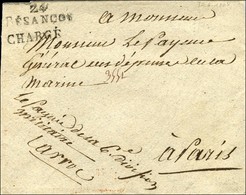 24
BESANCON
CHARGÉ
a Monsieur
Monsieur Le Payeur
Général des dépenses de la
Marine
Le Payeur de la 6e division
militaire
à Paris